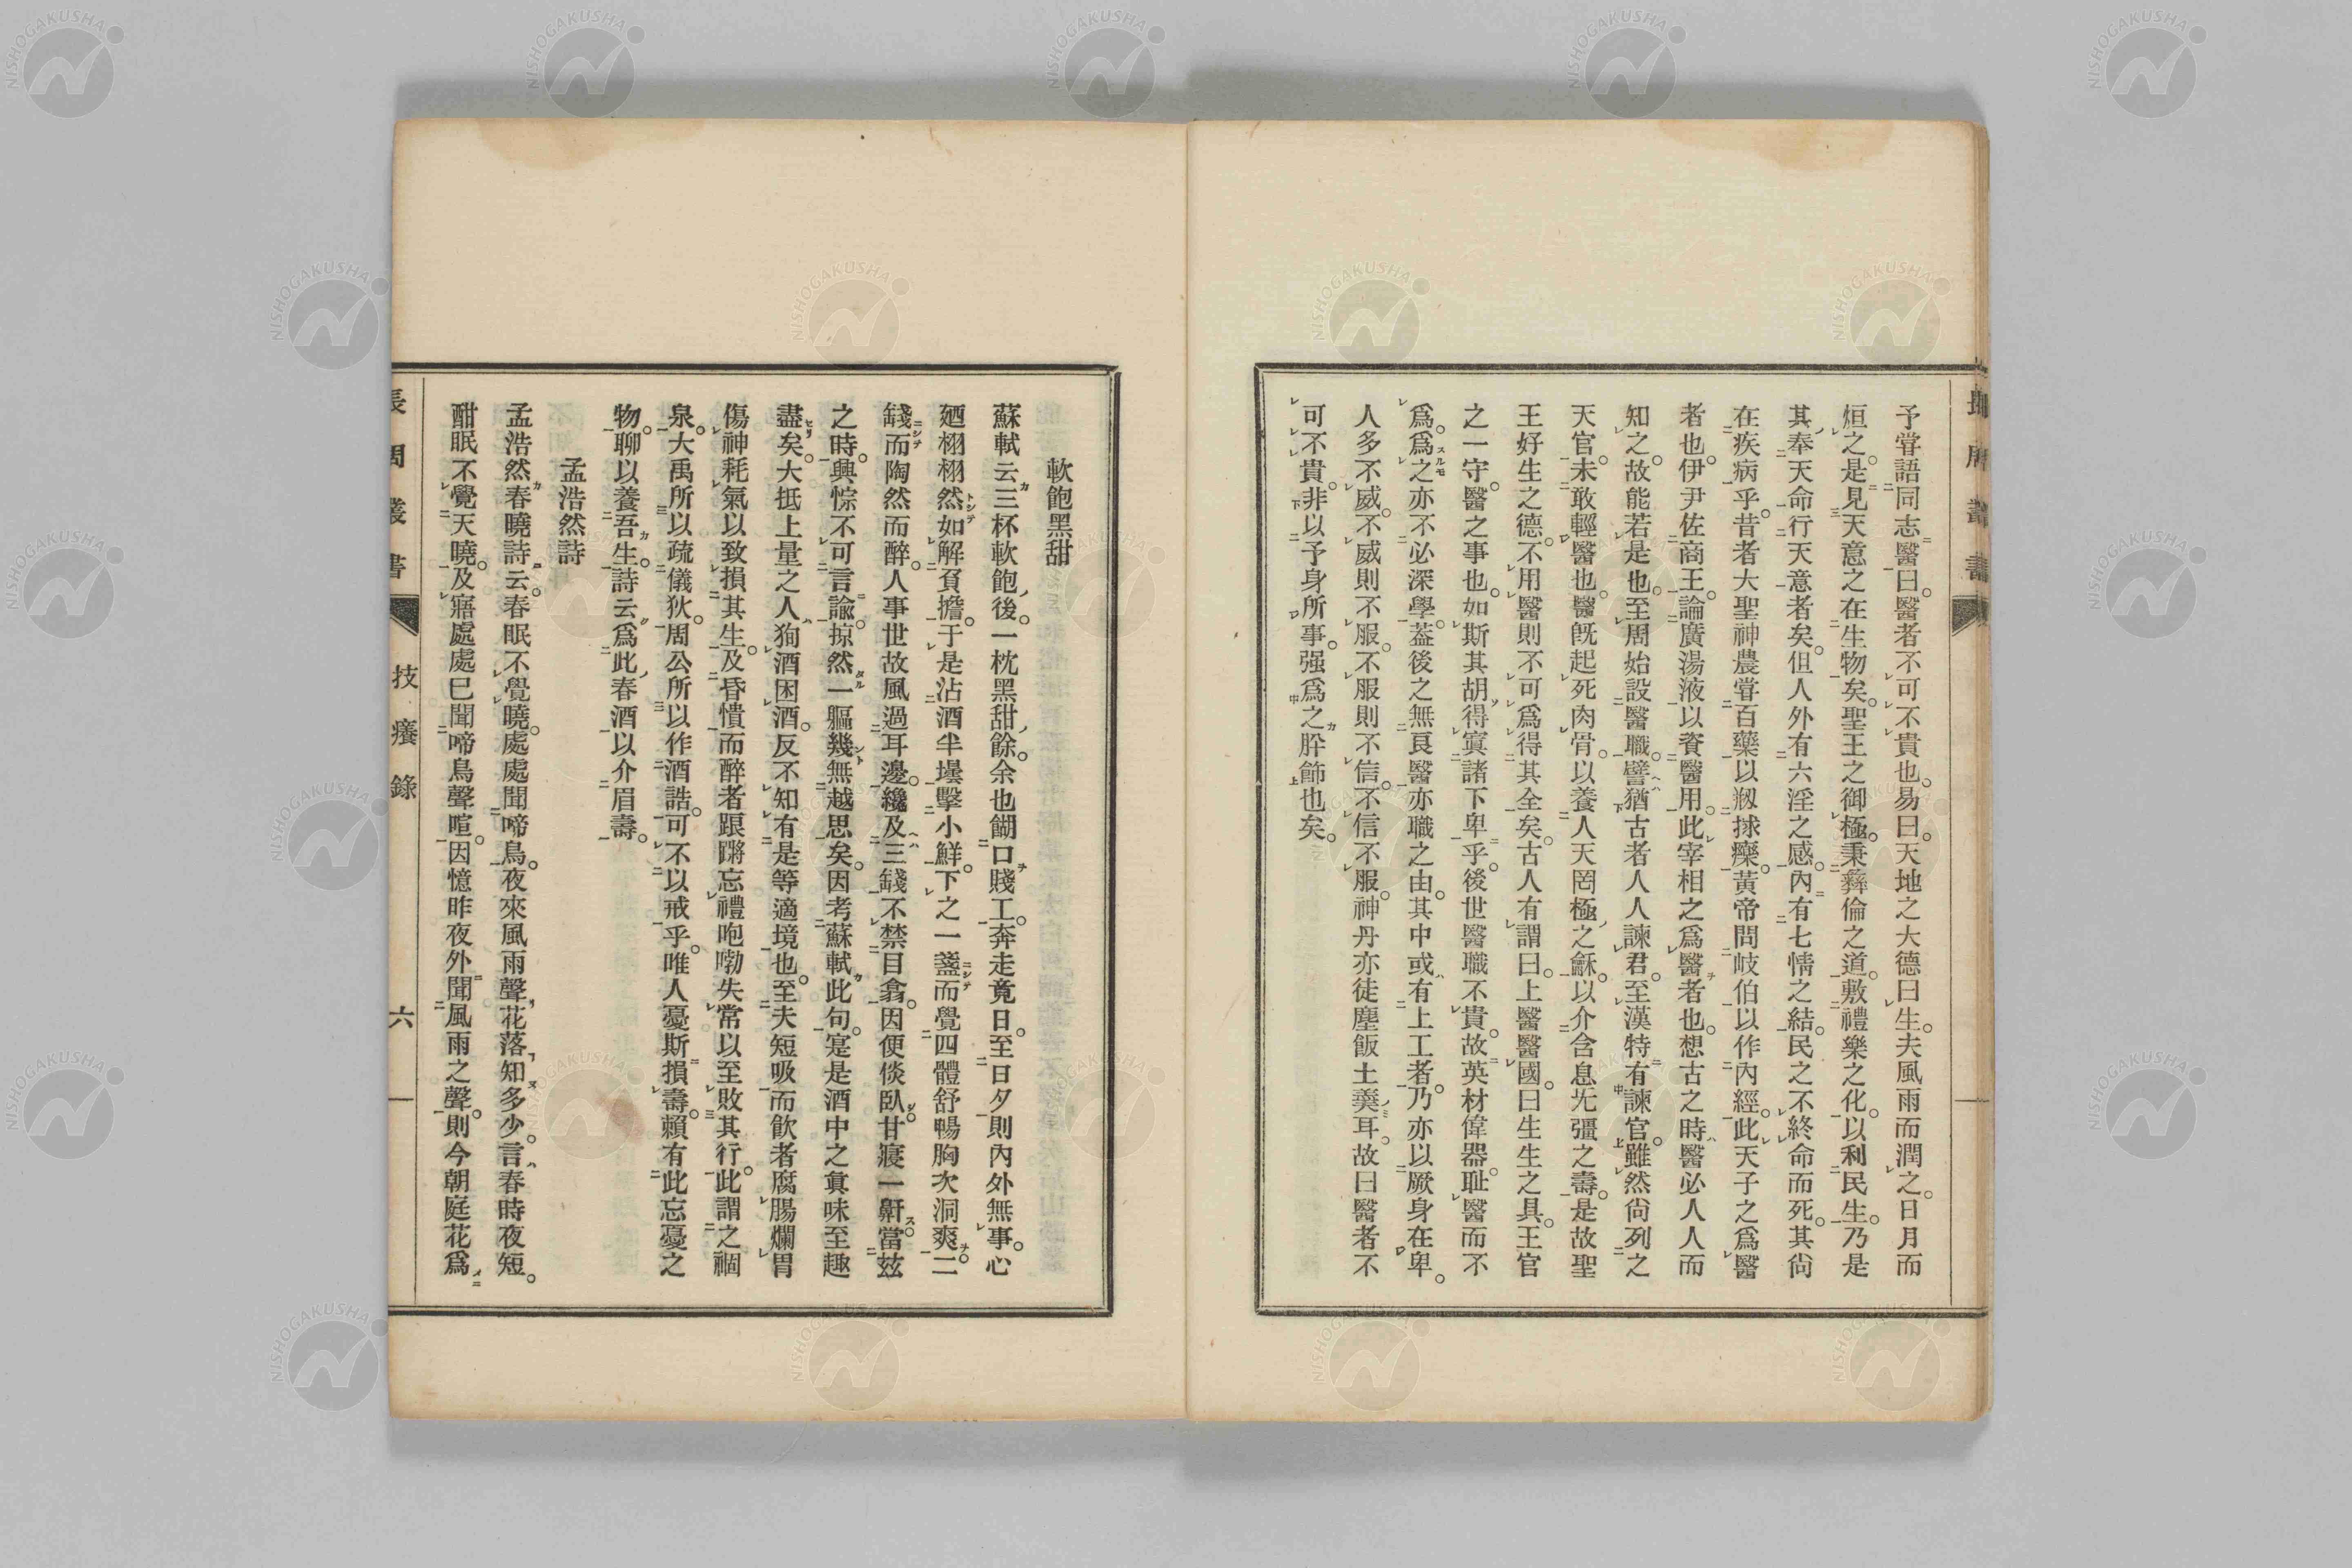 予甞語同志醫曰。醫者不可不貴也。易曰。天地之大德曰生。夫風雨而潤之。日月而
烜之。是見天意之在生物矣。聖王之御極。秉彜倫之道。敷禮樂之化。以利民生。乃是
其奉天命行天意者矣。但人外有六淫之感。內有七情之結。民之不終命而死。其尙
在疾病乎。昔者大聖神農甞百藥以捄癴。黃帝問岐伯以作內經。此天子之爲醫
者也。伊尹佐商王。論廣湯液以資醫用。此宰相之爲醫者也。想古之時醫必人人而
知之。故能若是也。至周始設醫職。譬猶古者人人諫君。至漢特有諫官。雖然尙列之
天官。未敢輕醫也。醫既起死肉骨。以養人天罔極之龢。以介含息无彊之壽。是故聖
王好生之德。不用醫則不可爲得其全矣。古人有謂曰。上醫醫國。曰生生之具。王官
之一守。醫之事也。如斯其胡得寘諸下卑乎。後世醫職不貴。故英材偉器。耻醫而不
爲。爲之亦不必深學。葢後之無良醫亦職之由。其中或有上工者。乃亦以厥身在卑。
人多不威。不威則不服。不服則不信。不信不服。神丹亦徒塵飯土羹耳。故曰醫者不
可不貴。非以予身所事。强爲之脺飾也矣。
軟飽黑甜
蘇軾云三杯軟飽後。一枕黑甜餘。余也餬口賤工。奔走竟日。至日夕則內外無事。心
廼栩栩然如解負擔。于是沽酒半壜擊小鮮。下之一盞而覺四體舒暢胸次洞爽。二
錢而陶然而醉。人事世故風過耳邊。纔及三錢不禁目翕。因便倓臥。甘寢一鼾。當玆
之時。興悰不可言諭。掠然一軀幾無越思矣。因考蘇軾此句。寔是酒中之眞味至趣
盡矣。大抵上量之人狥酒困酒。反不知有是等適境也。至夫短吸而飮者腐腸爛胃
傷神耗氣以致損其生。及昏憒而醉者踉蹡忘禮咆嘞失常以至敗其行。此謂之禍
泉。大禹所以疏儀狄。周公所以作酒誥。可不以戒乎。唯人憂斯損壽。賴有此忘憂之
物。聊以養吾生。詩云爲此春酒以介眉壽。
孟浩然詩
孟浩然春曉詩云。春眠不覺曉。處處聞啼鳥。夜來風雨聲。花落知多少。言春時夜短。
酣眠不覺天曉。及寤處處已聞啼鳥聲喧。因憶昨夜外聞風雨之聲。則今朝庭花爲
長周叢書 技癢錄 六